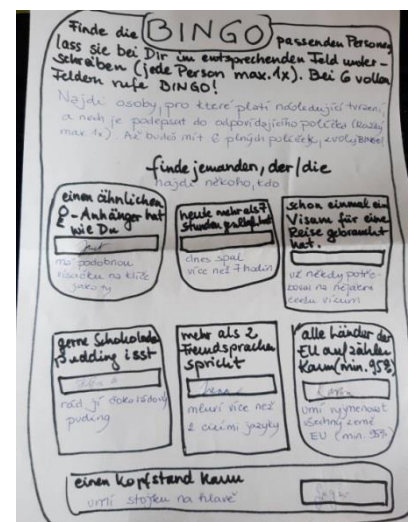 Finde die BINGO passenden Personen,
lass sie bei Dir im entsprechenden Feld unter-
schreiben (jede Person max. 1x). Bei 6 vollen
Feldern rufe BINGO!
Najdi osoby, pro které platí následující tvrzení,
a nech je podepsat do odpovídajícího políčka (každý
max. 1x). Až budeš mít 6 plných políček, zvolej BINGO!
finde jemanden, der/die
najdi někoho, kdo
einen ähnlichen
-Anhänger hat
wie Du
má podobnou
visačku na klíče
jako ty
heute mehr als 7
Stunden
dnes spal
více než 7 hodin
schon einmal ein
Visum für eine
Reise gebraucht
hat.
už někdy potře-
boval na nějakou
cestu vízum
gerne Schokoladen
pudding isst
rád jí čokoládový
puding
mehr als 2
Fremdsprachen
spricht
mluví více než
2 cizími jazyky
alle Länder der
EU aufzählen
kann (min. 95%)
umí vyjmenovat
všechny země
EU (min. 95%
einen Kopfstand kann
umí stojku na hlavě